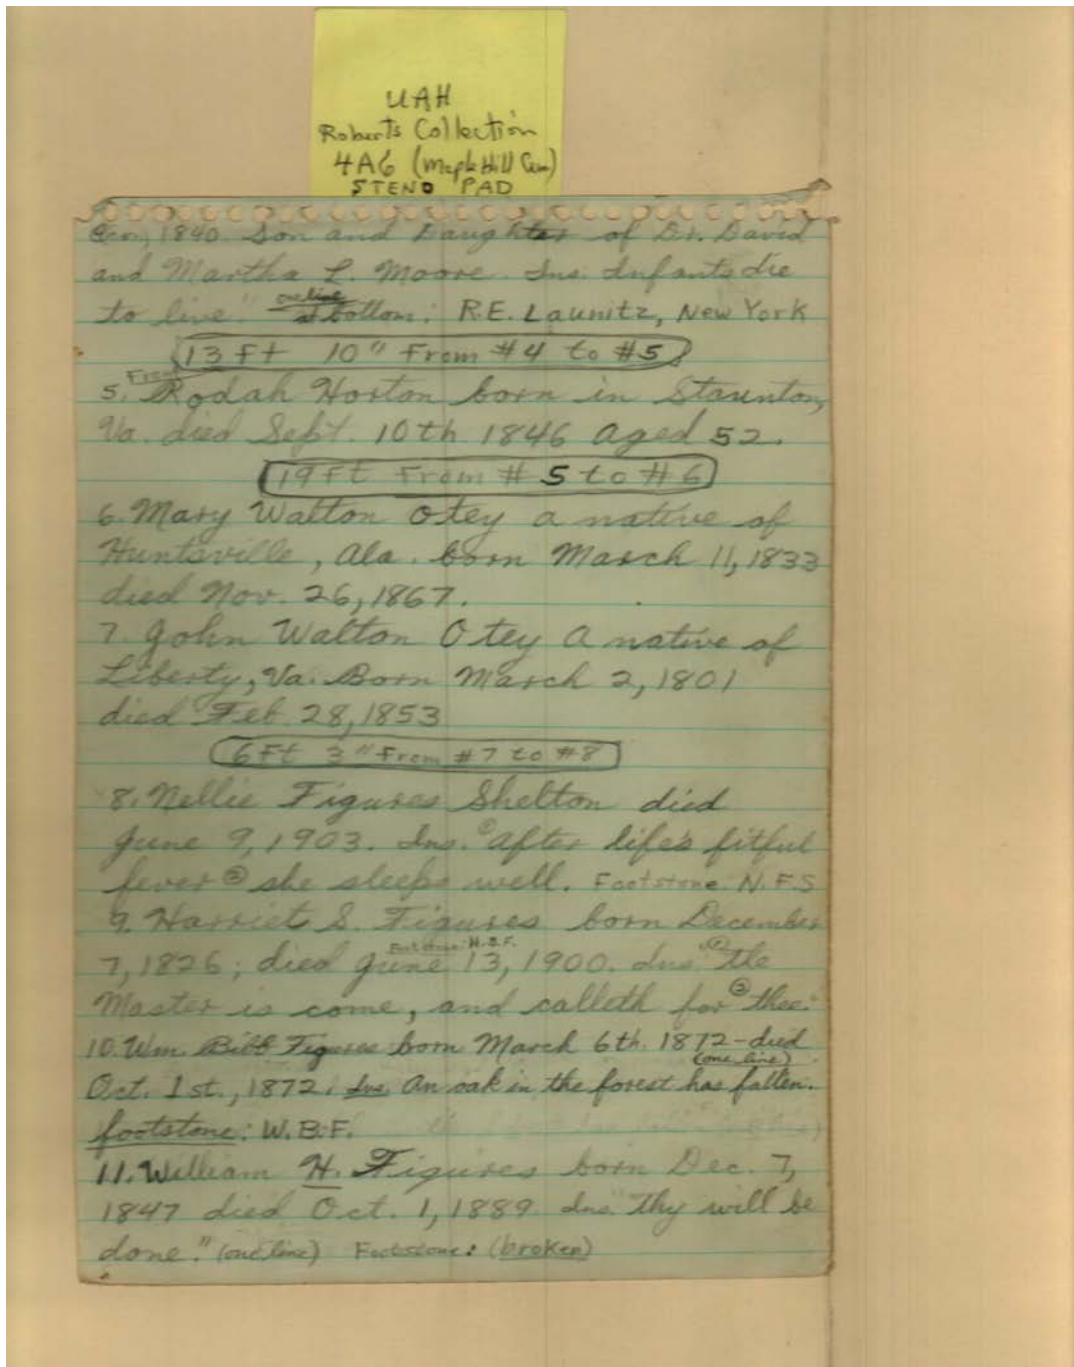 UAH
Roberts Collection
4A6 (Maple Hill Cem)
STENO PAD
1840. Son and Daughter of Dr. David
and Martha L. Moore. Ins. Infants die
to live" one line bottom: R.E. Launitz, New York
13 Ft 10" From #4 to #5
From
5. Rodah Horton born in Staunton,
Va. died Sept. 10th 1846 aged 52.
19 Ft From #5 to #6
6. Mary Walton Otey a native of
Huntsville, Ala. born March 11, 1833
died Nov. 26, 1867.
7. John Walton Otey a native of
Liberty, Va. Born March 2, 1801
died Feb 28, 1853
6 Ft 3" From #7 to #8
8. Nellie Figures Shelton died
June 9, 1903. Ins. ① "After life's fitful
fever ② she sleeps well. Footstone: N.F.S
9. Harriet S. Figures born December
Footstone: H.S.F.
7, 1826; died June 13, 1900. Ins. "① the
Master is come, and calleth for ② thee."
10. Wm. Bibb Figures born March 6th. 1872-died
(one line)
Oct. 1st., 1872. Ins. An oak in the forest has fallen.
footstone: W.B.F.
11. William H. Figures born Dec. 7,
1847 died Oct. 1, 1889. Ins. "Thy will be
done." (one line) Footstone: (broken)